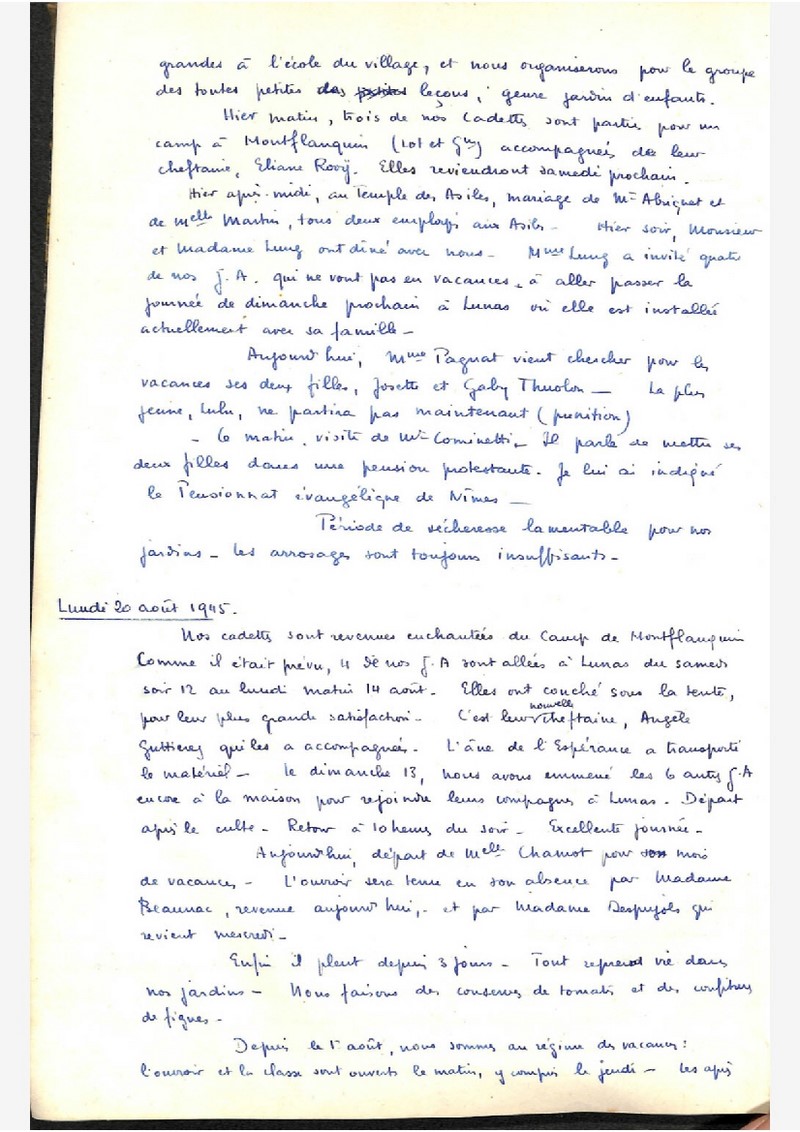 grandes à l'école du village, et nous organiserons pour le groupe
des toutes petites des petites leçons, genre jardin d'enfants.
Hier matin, trois de nos Cadettes sont parties pour un
camp à Montflanquin (Lot et Gne) accompagnées de leur
cheftaine, Eliane Rooÿ. Elles reviendront samedi prochain.
Hier après-midi, au Temple des Asiles, mariage de Mr et
de Melle Martin, tous deux employés aux Asiles - Hier soir, Monsieur
et Madame Lung ont dîné avec nous - Mme Lung a invité quatre
de nos J.A. qui ne vont pas en vacances, à aller passer la
journée de dimanche prochain à Lunas où elle est installée
actuellement avec sa famille -
Aujourd'hui, Mme Pagnat vient chercher pour les
vacances ses deux filles, Josette et Gaby Thuolon - La plus
jeune, Lulu, ne partira pas maintenant (punition)
- Ce matin, visite de Mr Cominetti - Il parle de mettre ses
deux filles dans une pension protestante. Je lui ai indiqué
le Pensionnat évangélique de Nîmes -
Période de sécheresse lamentable pour nos
jardins - Les arrosages sont toujours insuffisants -
Lundi 20 août 1945.
Nos cadettes sont revenues enchantées du Camp de Montflanquin
Comme il était prévu, 4 de nos J.A sont allées à Lunas du samedi
soir 12 au lundi matin 14 août. Elles ont couché sous la tente,
pour leur plus grande satisfaction - C'est leur nouvelle cheftaine, Angèle
Guttierez qui les a accompagnées. L'âne de l'Espérance a transporté
le matériel - Le dimanche 13, nous avons emmené les 6 autres J.A
encore à la maison pour rejoindre leurs compagnes à Lunas. Départ
après le culte - Retour à 10 heures du soir - Excellente journée -
Aujourd'hui, départ de Melle Chamot pour son mois
de vacances - L'ouvroir sera tenu en son absence par Madame
Beaunac, revenue aujourd'hui, - et par Madame Despujols qui
revient mercredi -
Enfin il pleut depuis 3 jours - Tout reprend vie dans
nos jardins - Nous faisons des conserves de tomates et des confitures
de figues -
Depuis le 1er août, nous sommes au régime des vacances :
l'ouvroir et la classe sont ouverts le matin, y compris le jeudi - Les après